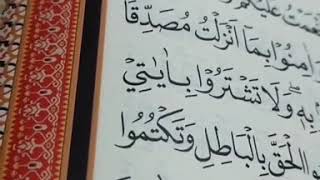 عَلَيْكُمْ
اٰمِنُوْا بِمَآ اَنْزَلْتُ مُصَدِّقًا
بِهٖ ۖ وَلَا تَشْتَرُوْا بِاٰيٰتِيْ
الْحَقَّ بِالْبَاطِلِ وَتَكْتُمُوا